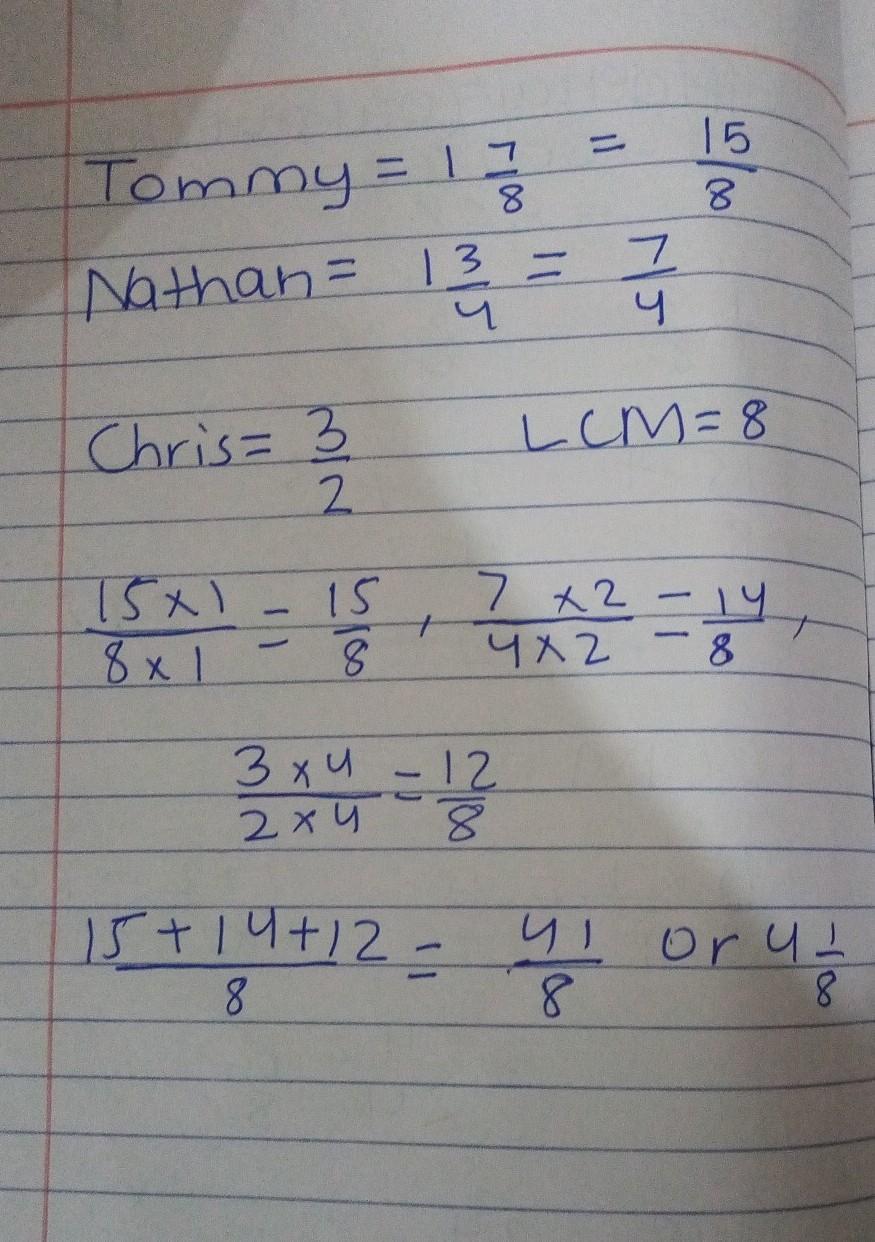 Tommy = 1 7/8 = 15/8
Nathan = 1 3/4 = 7/4
Chris = 3/2 LCM = 8
15 x 1/8 x 1 = 15/8 , 7 x 2/4 x 2 = 14/8 ,
3 x 4/2 x 4 = 12/8
15 + 14 + 12/8 = 41/8 or 4 1/8